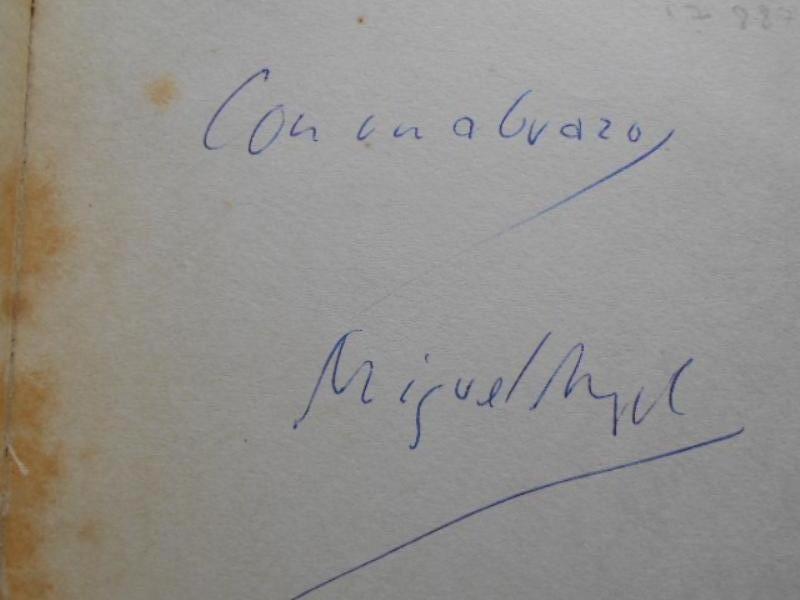 Con un abrazo
Miguel Angel